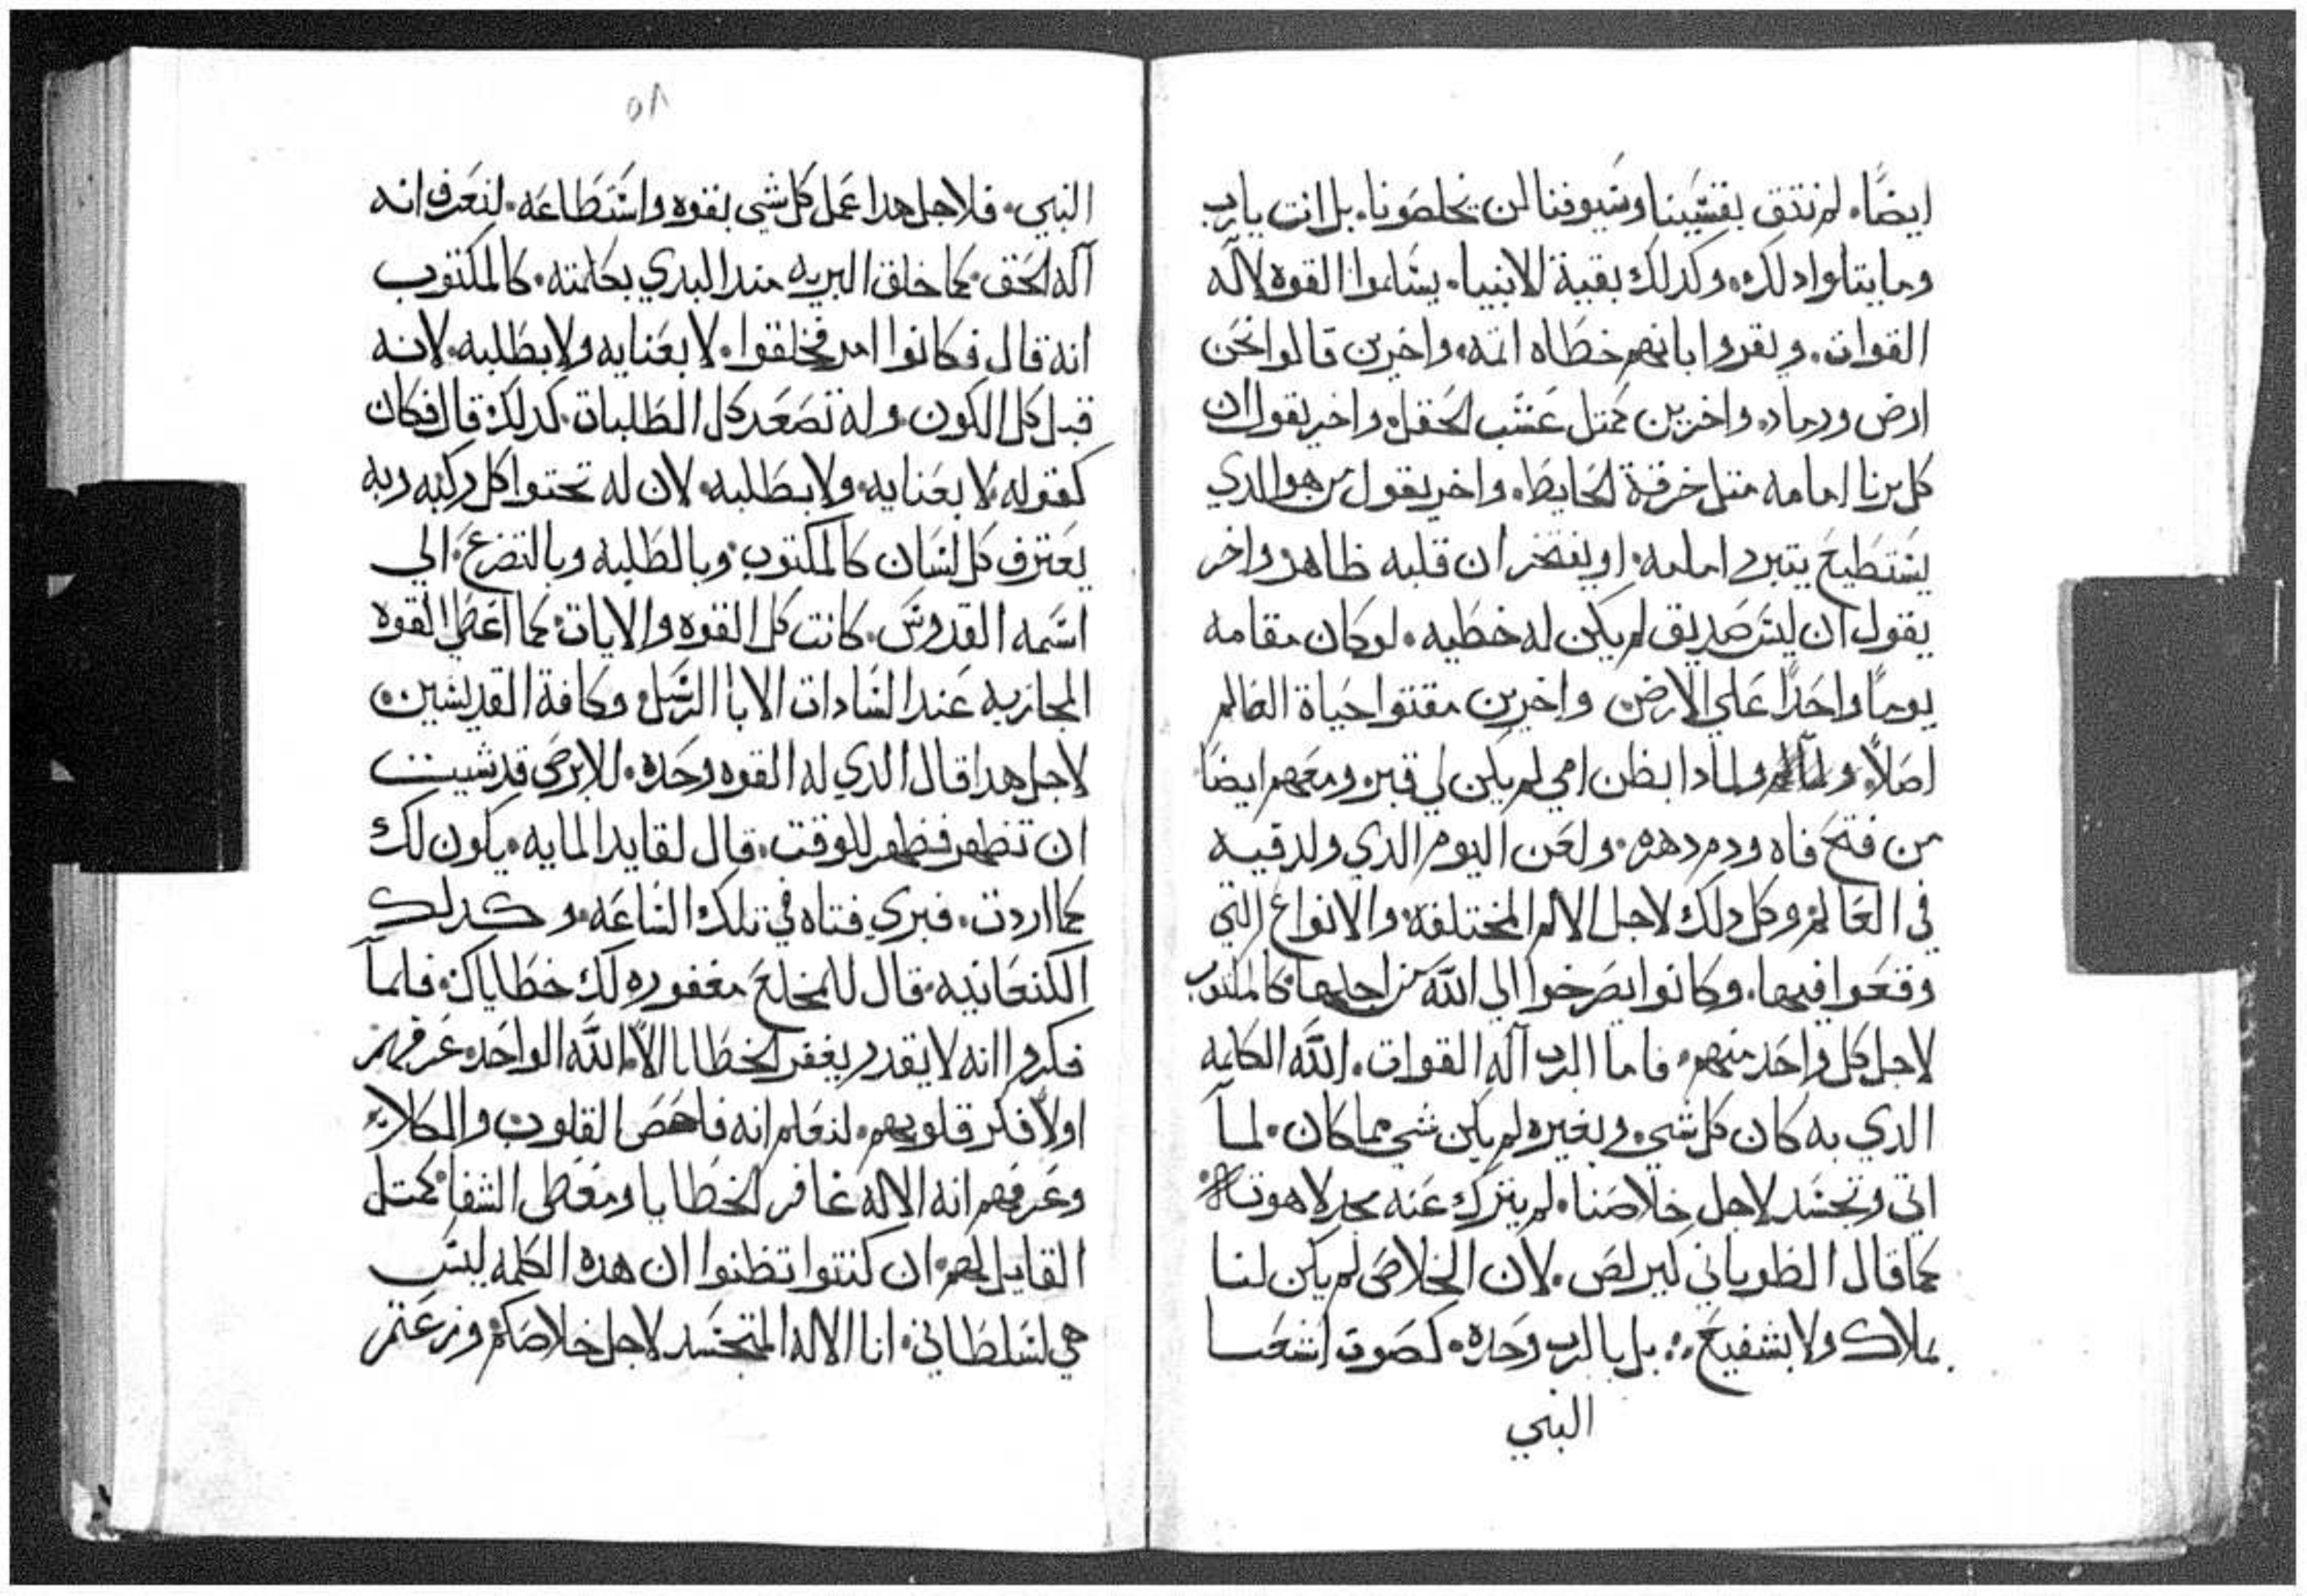 ايضًا. لم نتق بقسينا وسيوفنا لن تخلصونا. بل انت يارب
وما يتلوا دلك. وكدلك بقية الانبيا. يسلموا القوه لاله
القوات. ويقروا بانهم خطاه اتمه. واخرين قالوا نحن
ارض ورماد. واخرين كمتل عشب الحقل. واخر يقول ان
كل برنا امامه متل خرقة الحايط. واخر يقول من هو الدي
يستطيع يتبرر امامه. او يفتخر ان قلبه طاهر واخر
يقول ان ليس صديق لم يكن له خطيه. لو كان مقامه
يومًا واحدًا علي الارض. واخرين مقتوا حياة العالم
اصلاً. ولمادا بطن امي لم يكن لي قبر. ومعهم ايضا
من فتح فاه ودم دهره. ولعن اليوم الدي ولد فيه
في العالم. وكل دلك لاجل الالم المختلفه والانواع التي
وقعوا فيها. وكانوا يصرخوا الي الله من اجلها. كالمكتوب
لاجل كل واحد منهم. فاما الرب اله القوات. الله الكلمه
الدي به كان كل شي. وبغيره لم يكن شي مما كان. لما
اتي وتجسد لاجل خلاصنا. لم يترك عنه مجد لاهوته
كما قال الطوباني كيرلص. لان الخلاص لم يكن لنا
بملاك ولا بشفيع. بل بالرب وحده. كصوت اشعيا
النبي
٥٨
النبي. فلاجل هدا عمل كل شي بقوه واستطاعه. لنعرف انه
اله الحق. كما خلق البريه مند البدي بكلمته. كالمكتوب
انه قال فكانوا امر فخلقوا. لا بعنايه ولا بطلبه. لانه
قبل كل الكون. وله تصعد كل الطلبات. كدلك قال فكان
كقوله لا بعنايه ولا بطلبه. لان له تحتوا كل ركبه وبه
يعترف كل لسان كالمكتوب. وبالطلبه وبالتضرع. الي
اسمه القدوس. كانت كل القوه والايات. كما اعطي القوه
المجازيه عند السادات الابا الرسل وكافة القديسين.
لاجل هدا قال الدي له القوه وحده. للابرص قد شيت
ان تطهر فطهر للوقت. قال لقايد المايه. يكون لك
كما اردت. فبري فتاه في تلك الساعه. وكدلك
الكنعانيه. قال للمخلع مغفوره لك خطاياك. فلما
فكروا انه لا يقدر يغفر الخطايا الا الله الواحد. عرفهم
اولاً فكر قلوبهم. لنعلم انه فاحص القلوب والكلاء
وعرفهم انه الاله غافر الخطايا ومعطي الشفا. كمتل
القايل لهم. ان كنتوا تظنوا ان هده الكلمه ليس
هي لسلطاني. انا الاله المتجسد لاجل خلاصكم. وزعتم